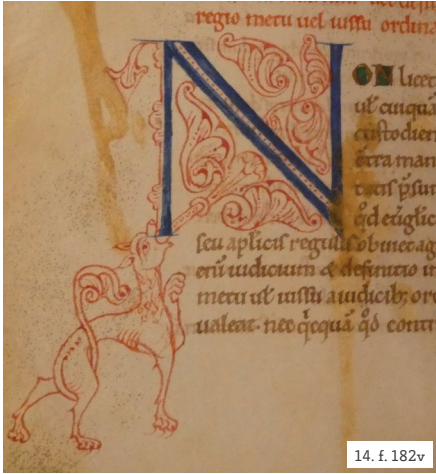 regio metu uel iussu ordina
NON licet
ul' cuiquā
custodien
man
p̄sum
seu ap̄licis regulis obuiet ag
iudicium & definitio in
metu ul' iussu a iudicib; or
ualeat. nec q̇cquā q̊d contr
14. f. 182v